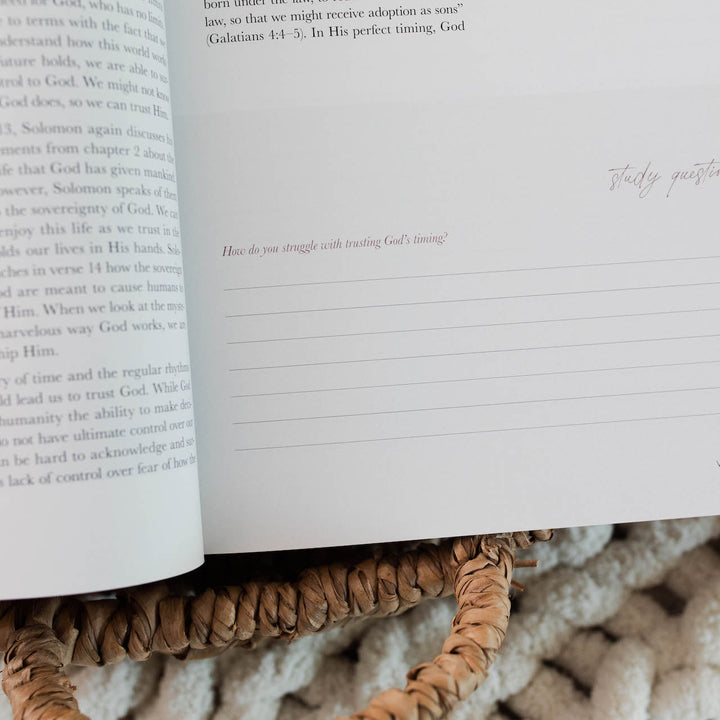 for God, who has no limits,
to terms with the fact that we
understand how this world works
future holds, we are able to
control to God. We might not know
God does, so we can trust Him.
13, Solomon again discusses his
from chapter 2 about the
life that God has given mankind.
However, Solomon speaks of them
the sovereignty of God. We can
enjoy this life as we trust in the
holds our lives in His hands.
in verse 14 how the sovereign
are meant to cause humans to
Him. When we look at the
marvelous way God works, we are
Him.
of time and the regular rhythm
lead us to trust God. While God
humanity the ability to make
not have ultimate control over our
can be hard to acknowledge and
lack of control over fear of how the
born under the law, to
law, so that we might receive adoption as sons”
(Galatians 4:4–5). In His perfect timing, God
study
How do you struggle with trusting God’s timing?